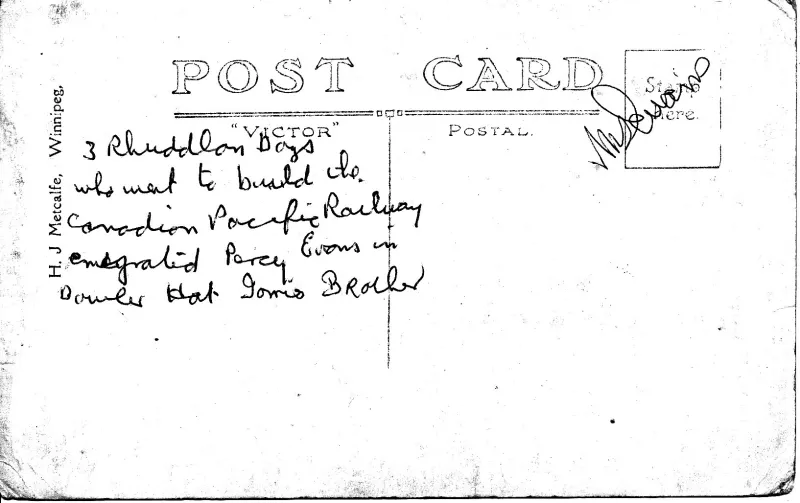 POST CARD
"VICTOR" POSTAL.
Stamp
Here.
H. J Metcalfe, Winnipeg,
3 Rhuddlan Boys
who went to build the
Canadian Pacific Railway
emegrated Percy Evans in
Bowler Hat Tomis BRother